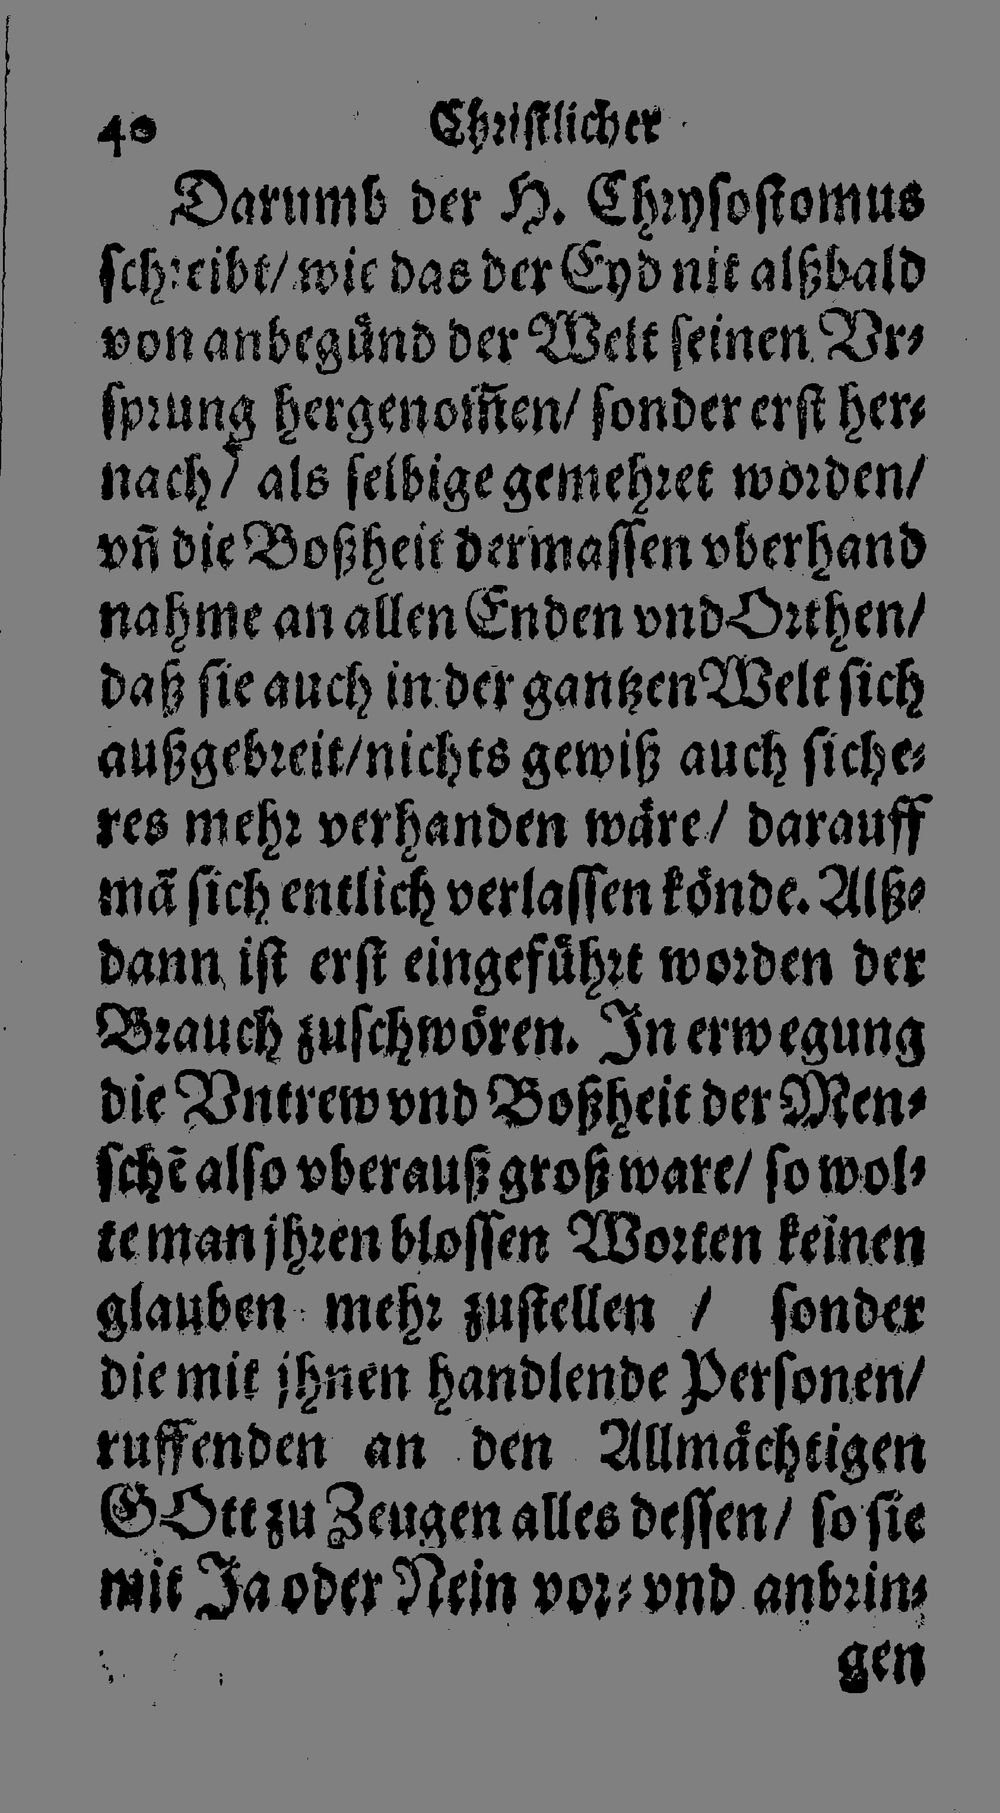 40 Christlicher
Darumb der H. Chrysostomus
schreibt/ wie das der Eyd nit alßbald
von anbegünd der Welt seinen Vr-
sprung hergenom̃en/ sonder erst her-
nach/ als selbige gemehret worden/
vn̄ die Boßheit dermassen vberhand
nahme an allen Enden vnd Orthen/
daß sie auch in der gantzen Welt sich
außgebreit/ nichts gewiß auch siche-
res mehr verhanden wäre/ darauff
mā sich entlich verlassen könde. Alß-
dann ist erst eingeführt worden der
Brauch zuschwören. In erwegung
die Vntrew vnd Boßheit der Men-
schē also vberauß groß ware/ so wol-
te man jhren blossen Worten keinen
glauben mehr zustellen / sonder
die mit jhnen handlende Personen/
ruffenden an den Allmächtigen
GOtt zu Zeugen alles dessen/ so sie
mit Ja oder Nein vor- vnd anbrin-
gen